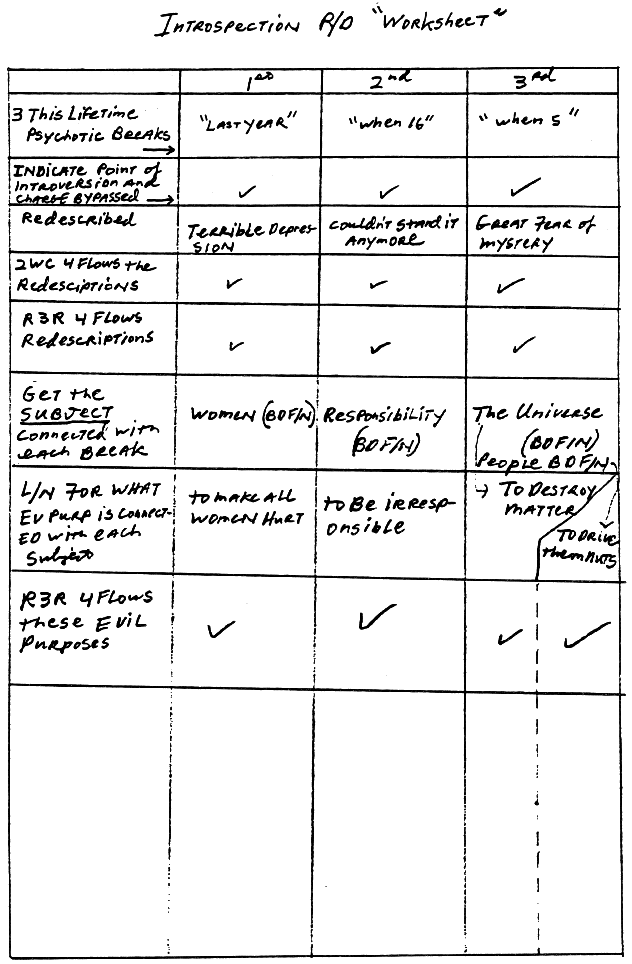 INTROSPECTION R/D "WORKSHEET"
1st 2nd 3rd
3 This Lifetime
Psychotic Breaks →
"LAST YEAR" "when 16" "when 5"
INDICATE Point of
INTROVERSION AND
CHARGE BYPASSED →
✓ ✓ ✓
Redescribed
Terrible Depres-
SION
COULDN'T STAND IT
ANYMORE
GREAT FEAR OF
MYSTERY
2WC 4 FLOWS the
Redesciptions
✓ ✓ ✓
R3R 4 FLOWS
Redescriptions
✓ ✓ ✓
GET the
SUBJECT
CONNECTED with
each BREAK
WOMEN (BDF/N)
Responsibility
(BDF/N)
The Universe
(BDF/N)
People BDF/N
L/N FOR WHAT
EV PURP is CONNECT-
ED with EACH
Subject
to MAKE ALL
WOMEN HURT
to Be irresp-
onsible
→ TO DESTROY
MATTER
TO DRIVE
them NUTS
R3R 4 FLOWS
these EVIL
PURPOSES
✓ ✓ ✓ ✓